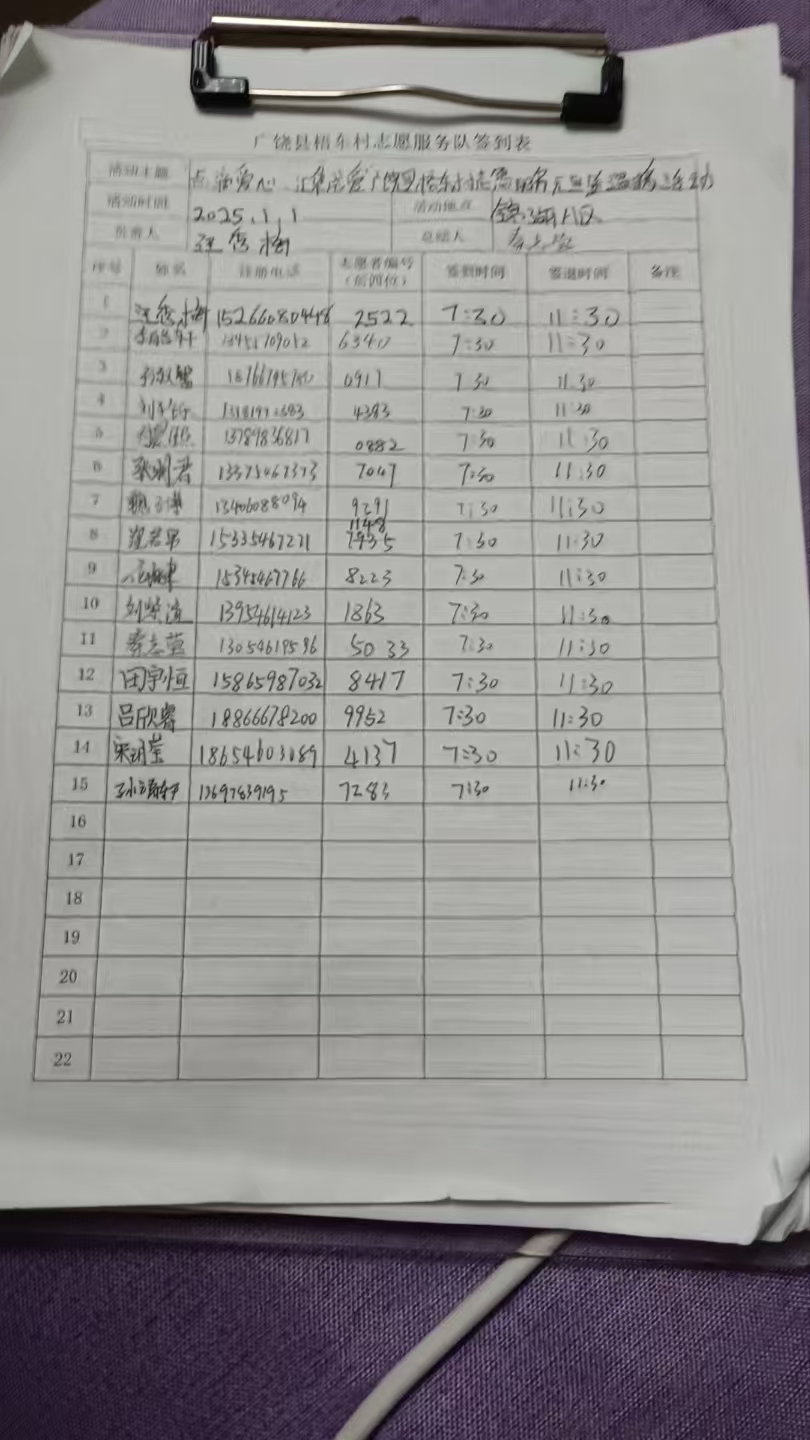 广饶县梧车村志愿服务队签到表
活动主题 点滴爱心 汇集
活动时间 2025.1.1 活动地点 锦湖八区
负责人 汪秀梅 总结人 秦志莹
序号 姓名 注册电话 志愿者编号（后四位） 签到时间 签退时间 备注
1 汪秀梅 15266080448 2522 7:30 11:30
2 6340 7:30 11:30
3 0917 7:30 11:30
4 4383 7:30 11:30
5 13789836817 0882 7:30 11:30
6 7047 7:30 11:30
7 13406088094 9291 7:30 11:30
8 15335467271 1148 7:30 11:30
9 15345467766 8223 7:30 11:30
10 13954614123 1863 7:30 11:30
11 秦志莹 13054619596 5033 7:30 11:30
12 田宇恒 15865987032 8417 7:30 11:30
13 吕欣睿 18866678200 9952 7:30 11:30
14 宋明莹 18654603089 4137 7:30 11:30
15 13697839195 7283 7:30 11:30
16
17
18
19
20
21
22